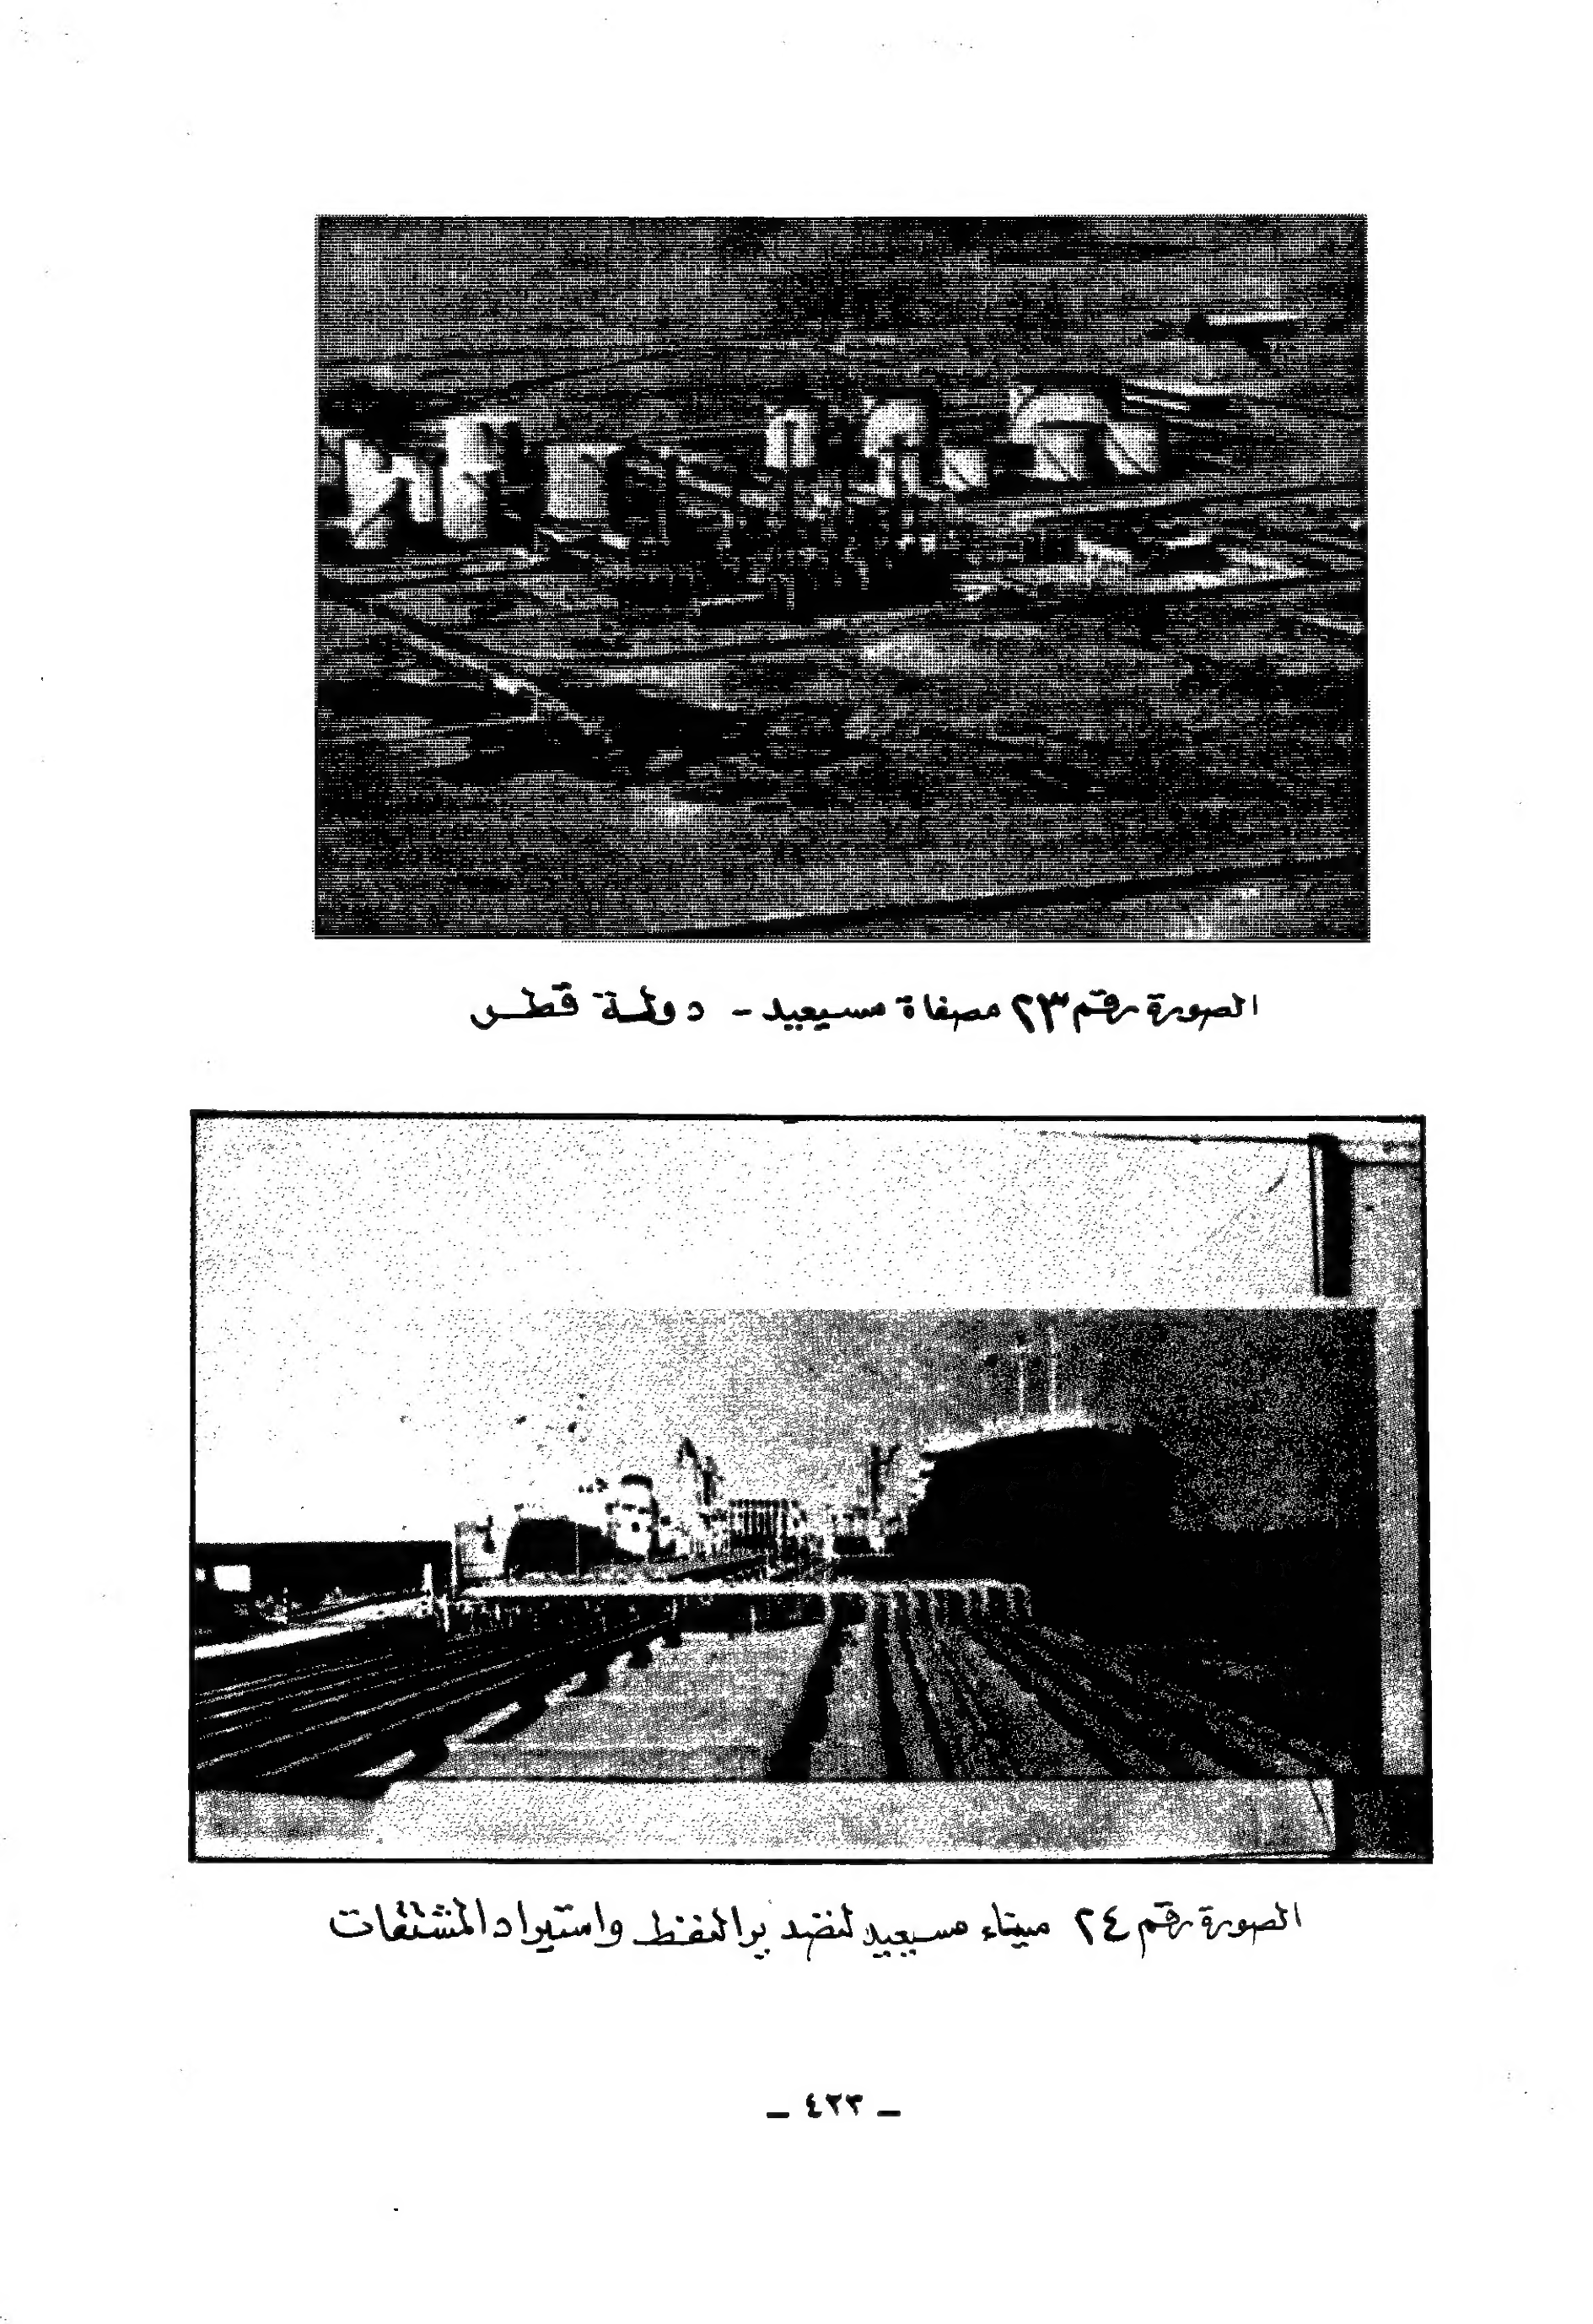 الصورة رقم ٢٣ مصفاة مسيعيد - دولة قطر
الصورة رقم ٢٤ ميناء مسيعيد لتصدير النفط واستيراد المشتقات
ـ ٤٢٣ ـ